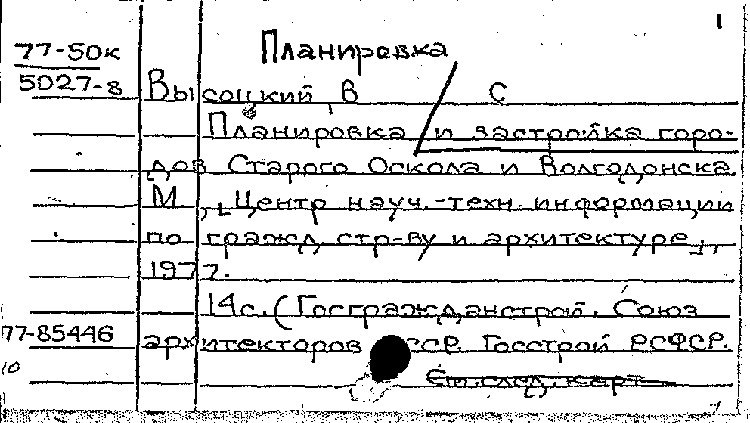 1
Планировка
77-50к
5027-8
Высоцкий В С
Планировка и застройка горо-
дов Старого Оскола и Волгодонска.
М., [Центр науч.-техн. информации
по гражд. стр-ву и архитектуре],
1977.
14с. (Госгражданстрой. Союз
77-85446
архитекторов СССР. Госстрой РСФСР.
10
См. след. карт.